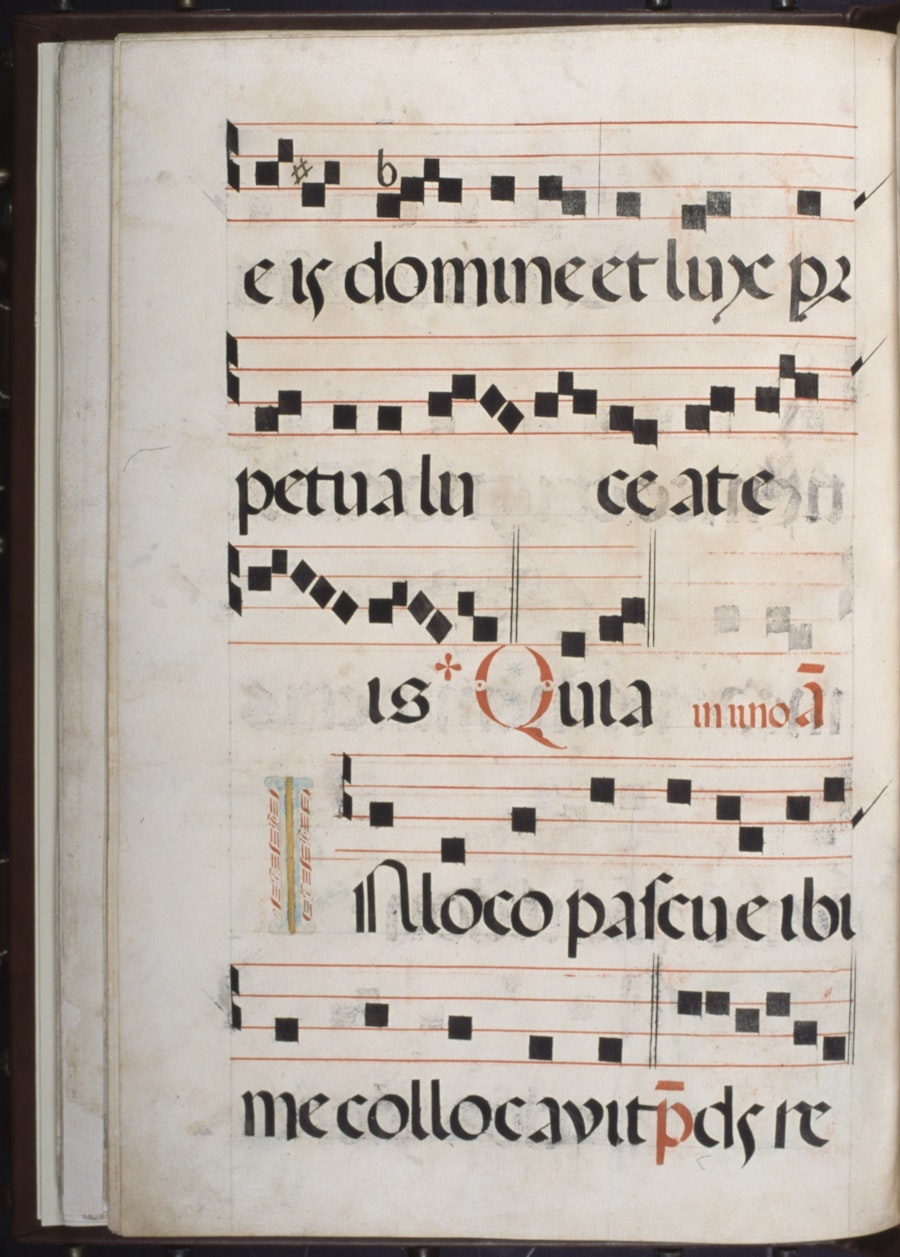 e is domine et lux pꝛ
petua lu ce at e
is Quia in uno ā
IN loco pascue ibi
me collocavit p̄ ds re